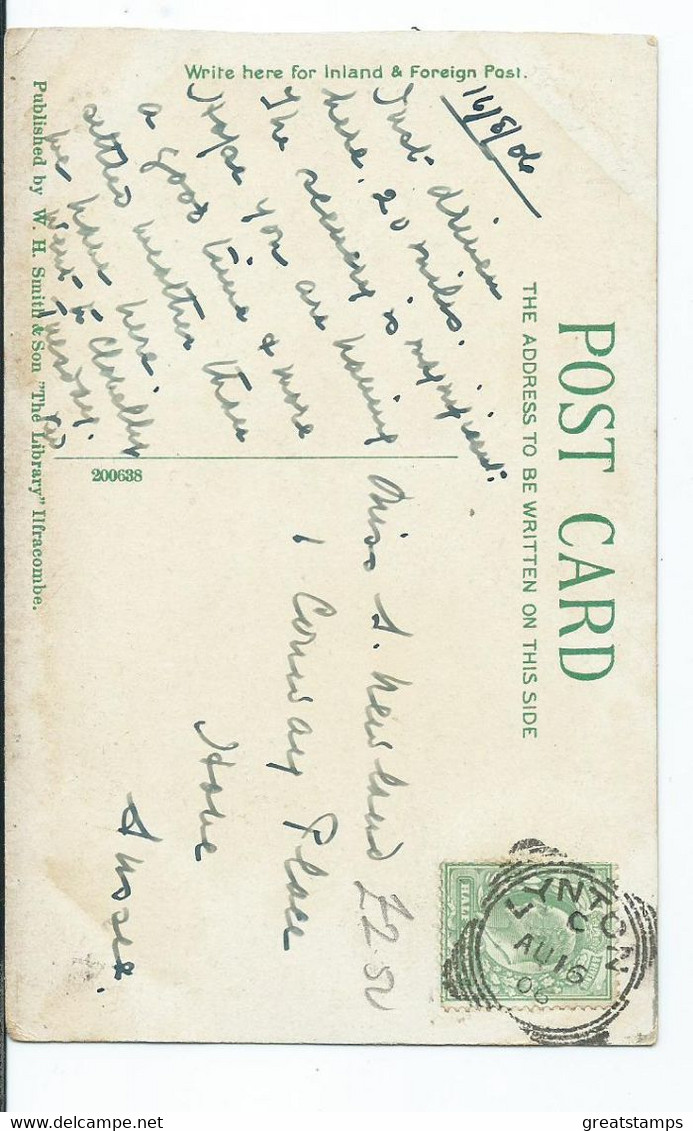 Write here for Inland & Foreign Post.
POST CARD
THE ADDRESS TO BE WRITTEN ON THIS SIDE
16/8/06
Just driven
here. 20 miles.
The scenery is magnificent.
Hope you are having
a good time & more
settled weather than
we have here.
Went to Clovelly
Tuesday.
200638
Published by W. H. Smith & Son "The Library" Ilfracombe.
Miss S. Newland
1 Conway Place
Hove
Sussex.
£2.50
HALF
LYNTON
C
AU 16
06
greatstamps